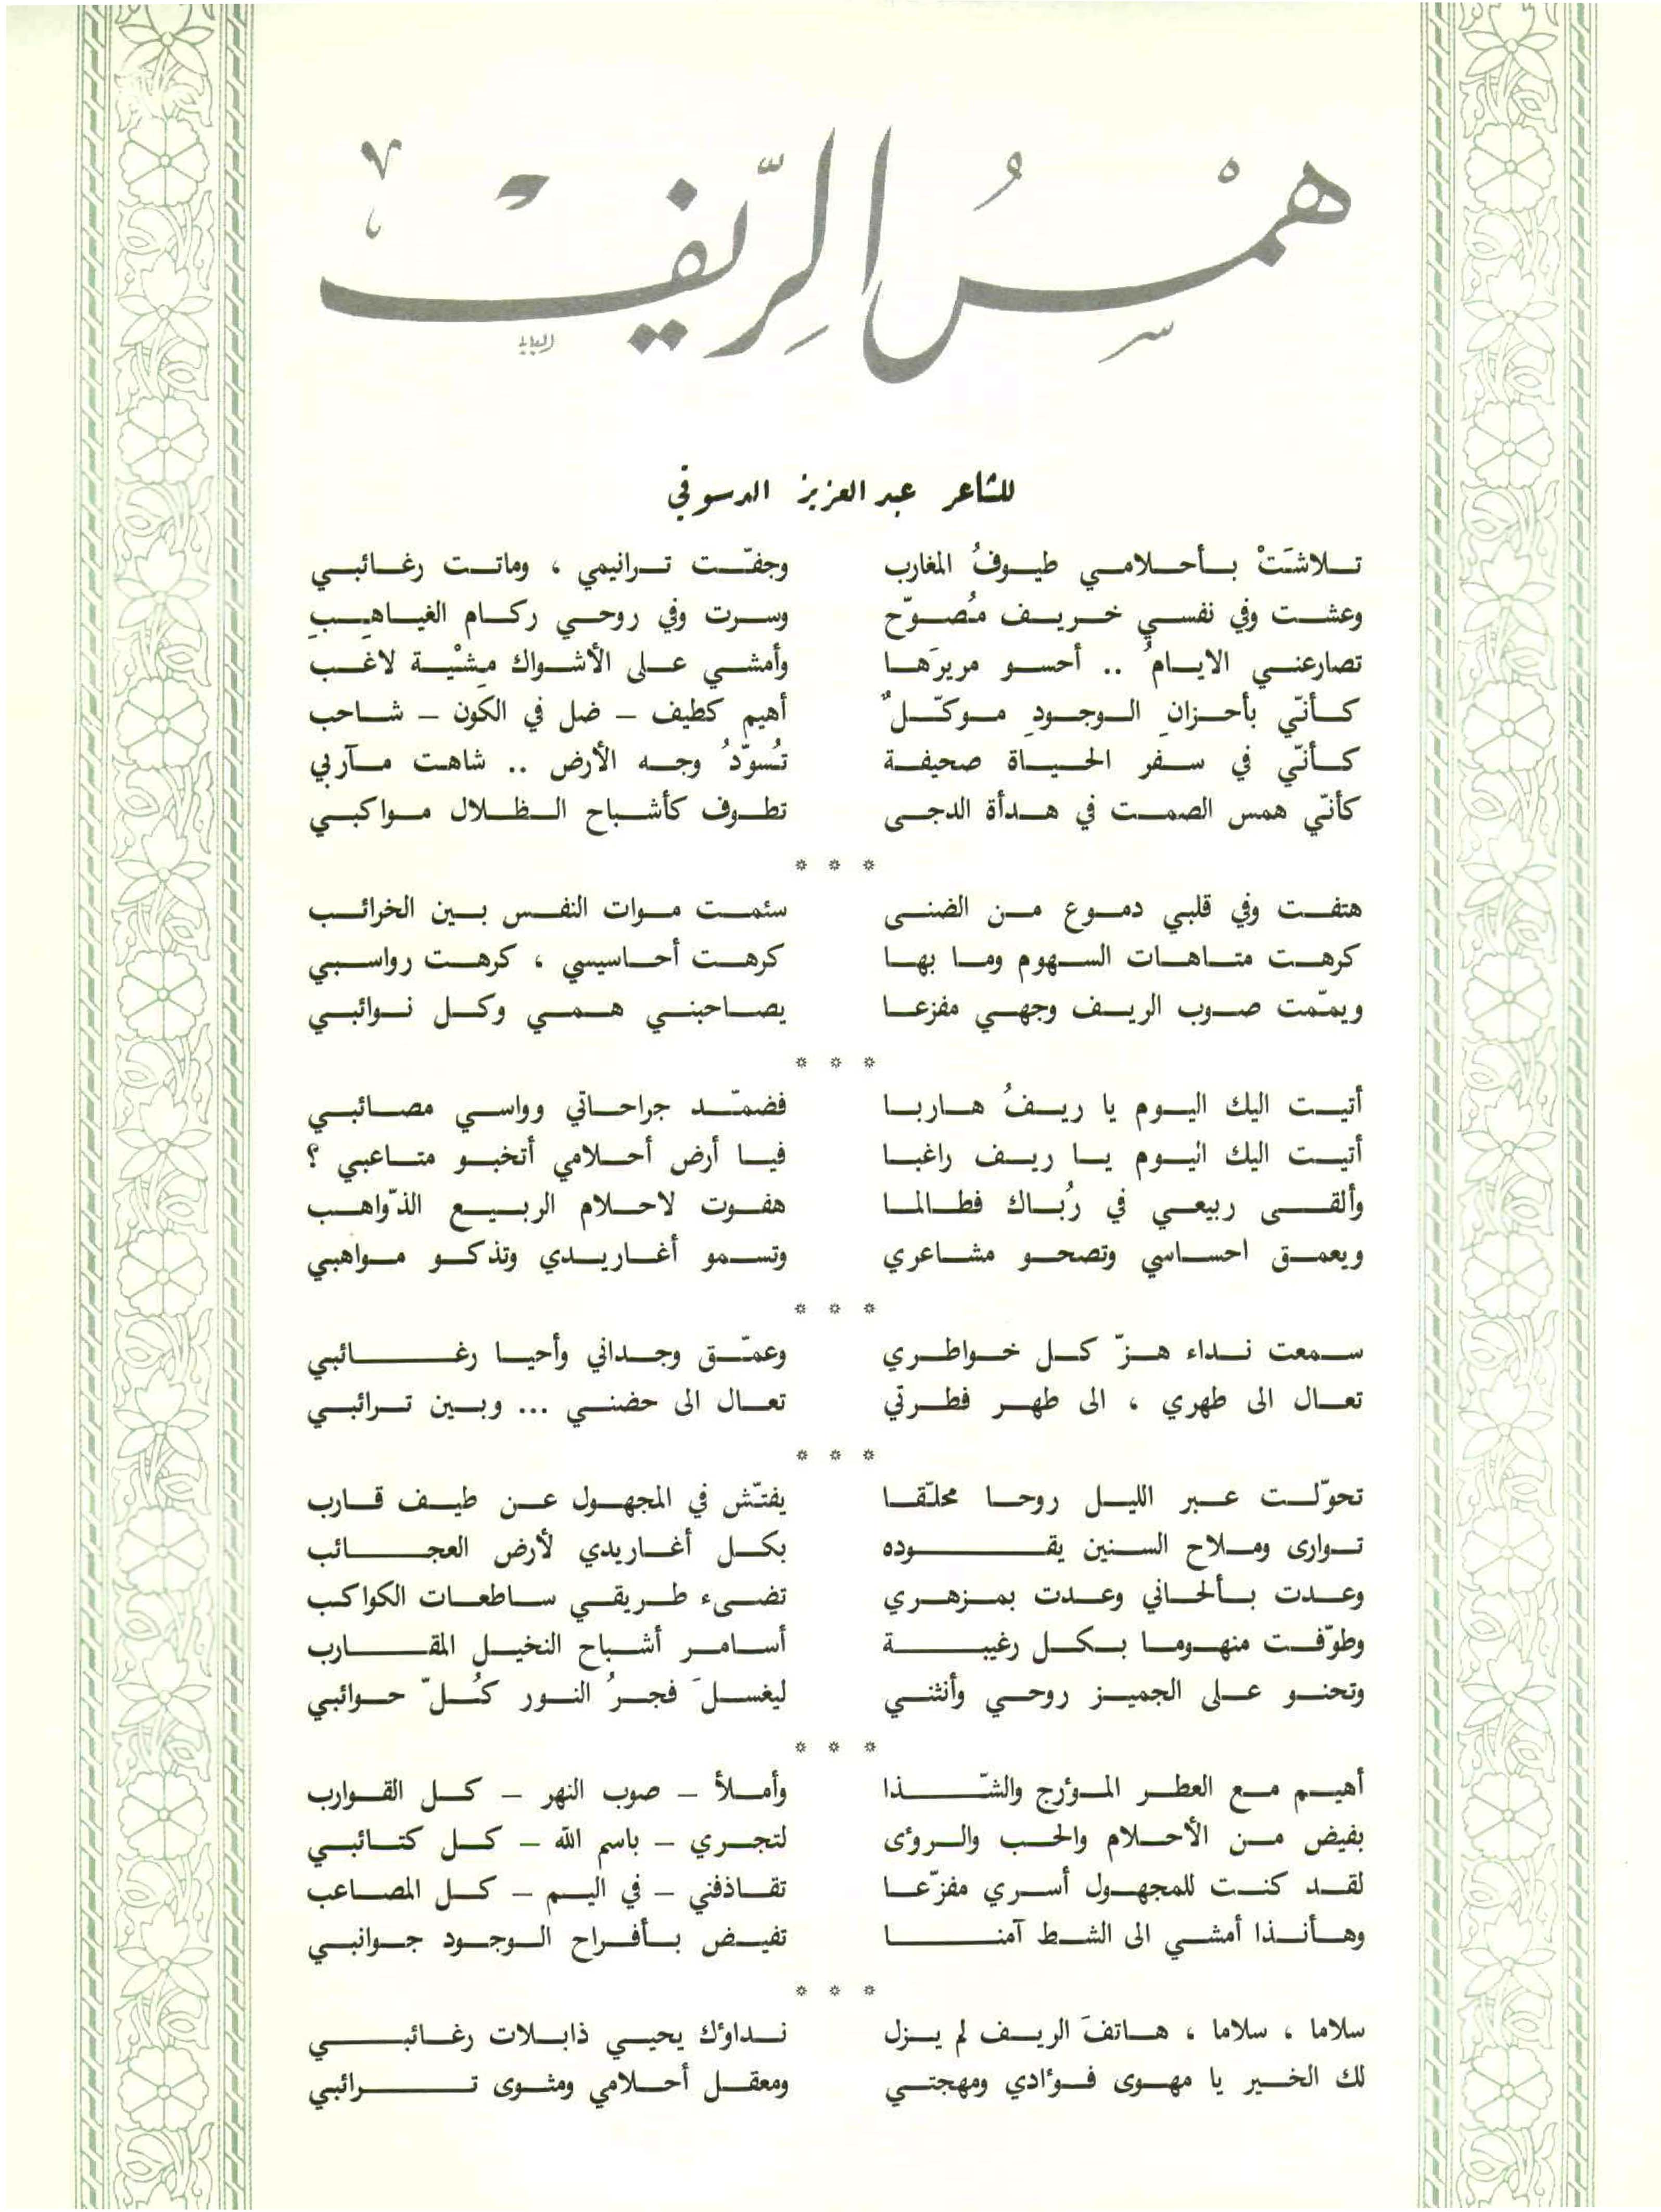 همْسُ الرِّيف
للشاعر عبد العزيز الدسوقي
تلاشتْ بأحلامي طيوفُ المغارب وجفّت ترانيمي ، وماتت رغائبي
وعشت وفي نفسي خريف مُصوّح وسرت وفي روحي ركام الغياهِبِ
تصارعني الايامُ .. أحسو مريرَها وأمشي على الأشواك مِشْيَة لاغب
كأنّي بأحزانِ الوجودِ موكّلٌ أهيم كطيف – ضل في الكون – شاحب
كأنّي في سفر الحياة صحيفة تُسوّدُ وجه الأرض .. شاهت مآربي
كأنّي همس الصمت في هدأة الدجى تطوف كأشباح الظلال مواكبي
* * *
هتفت وفي قلبي دموع من الضنى سئمت موات النفس بين الخرائب
كرهت متاهات السهوم وما بها كرهت أحاسيسي ، كرهت رواسبي
ويمّمت صوب الريف وجهي مفزعا يصاحبني همي وكل نوائبي
* * *
أتيت اليك اليوم يا ريفُ هاربا فضمّد جراحاتي وواسي مصائبي
أتيت اليك اليوم يا ريف راغبا فيا أرض أحلامي أتخبو متاعبي ؟
وألقى ربيعي في رُباك فطالما هفوت لاحلام الربيع الذّواهب
ويعمق احساسي وتصحو مشاعري وتسمو أغاريدي وتذكو مواهبي
* * *
سمعت نداء هزّ كل خواطري وعمّق وجداني وأحيا رغائبي
تعال الى طهري ، الى طهر فطرتي تعال الى حضني ... وبين ترائبي
* * *
تحوّلت عبر الليل روحا محلّقا يفتّش في المجهول عن طيف قارب
توارى وملاح السنين يقوده بكل أغاريدي لأرض العجائب
وعدت بألحاني وعدت بمزهري تضىء طريقي ساطعات الكواكب
وطوّفت منهوما بكل رغيبة أسامر أشباح النخيل المقارب
وتحنو على الجميز روحي وأنثني ليغسلَ فجرُ النور كُلّ حوائبي
* * *
أهيم مع العطر المؤرج والشّذا وأملأ – صوب النهر – كل القوارب
بفيض من الأحلام والحب والرؤى لتجري – باسم الله – كل كتائبي
لقد كنت للمجهول أسري مفزّعا تقاذفني – في اليم – كل المصاعب
وهأنذا أمشي الى الشط آمنا تفيض بأفراح الوجود جوانبي
* * *
سلاما ، سلاما ، هاتفَ الريف لم يزل نداؤك يحيي ذابلات رغائبي
لك الخير يا مهوى فؤادي ومهجتي ومعقل أحلامي ومثوى ترائبي